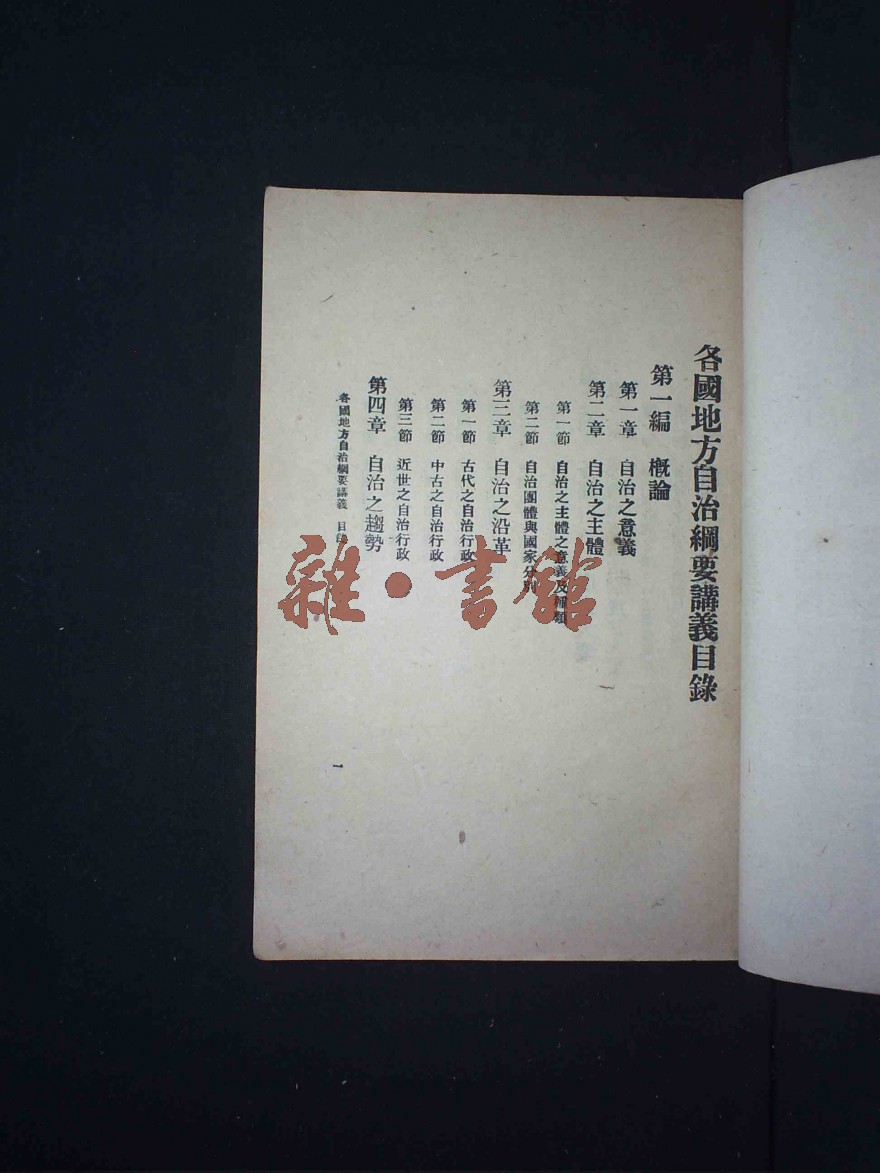 各國地方自治綱要講義目錄
第一編 概論
第一章 自治之意義
第二章 自治之主體
第一節 自治之主體之意義及種類
第二節 自治團體與國家分別
第三章 自治之沿革
第一節 古代之自治行政
第二節 中古之自治行政
第三節 近世之自治行政
第四章 自治之趨勢
各國地方自治綱要講義 目錄
一
雜·書館